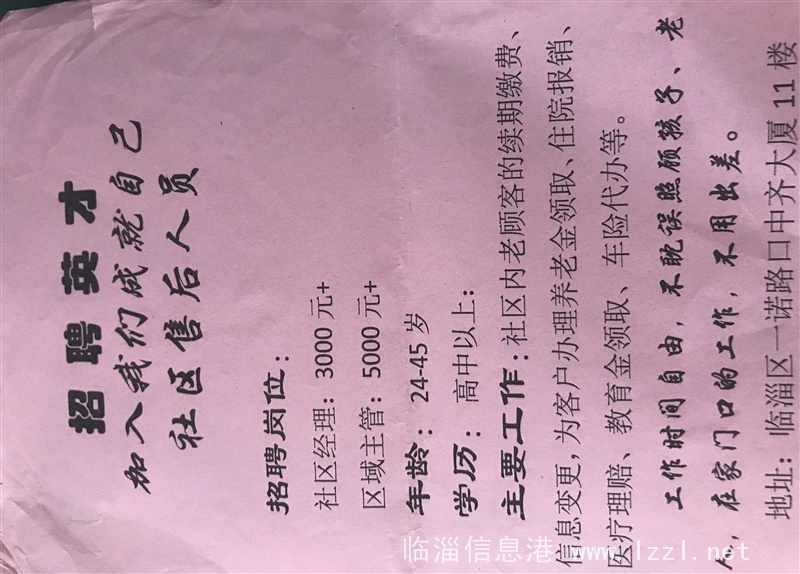 招聘英才
加入我们成就自己
社区售后人员
招聘岗位：
社区经理：3000 元+
区域主管：5000 元+
年龄：24-45 岁
学历：高中以上：
主要工作：社区内老顾客的续期缴费、
信息变更，为客户办理养老金领取、住院报销、
医疗理赔、教育金领取、车险代办等。
工作时间自由，不耽误照顾孩子、老
人，在家门口的工作，不用出差。
地址：临淄区一诺路口中齐大厦 11 楼
临淄信息港 www.lzzl.net